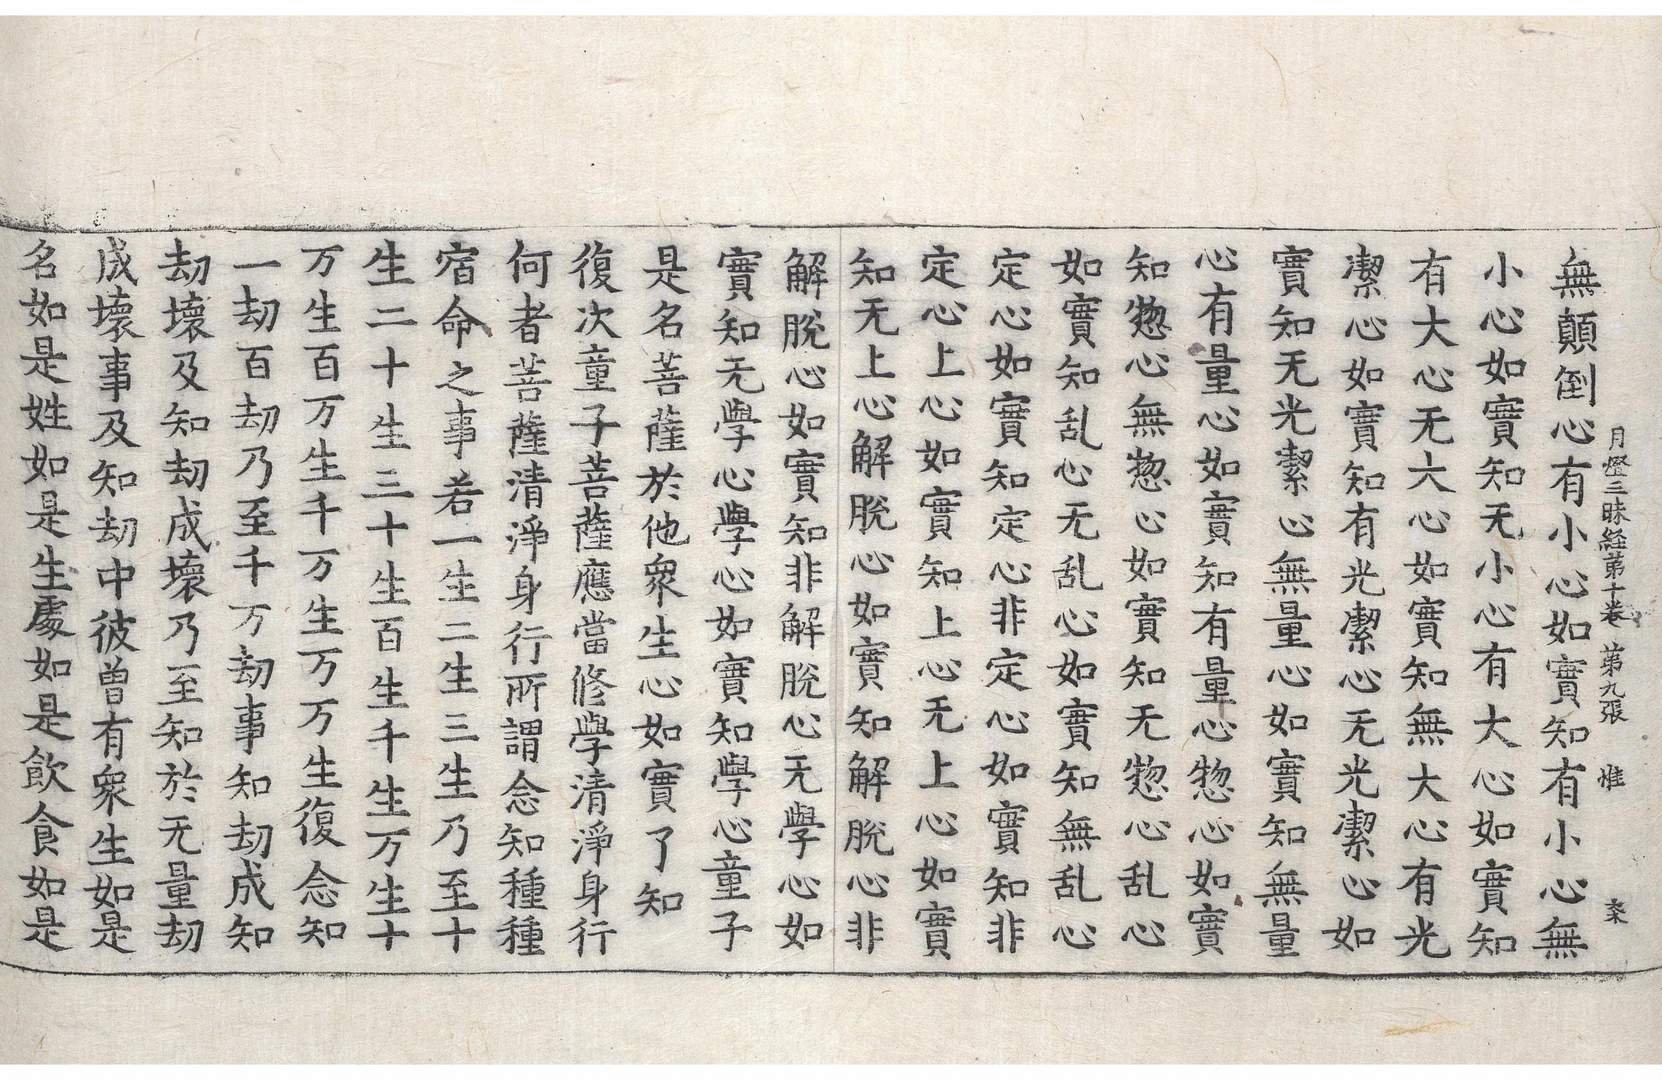 月燈三昧経第十卷 第九張 惟 桒
無顛倒心有小心如實知有小心無
小心如實知无小心有大心如實知
有大心无大心如實知無大心有光
潔心如實知有光潔心无光潔心如
實知无光潔心無量心如實知無量
心有量心如實知有量心惣心如實
知惣心無惣心如實知无惣心乱心
如實知乱心无乱心如實知無乱心
定心如實知定心非定心如實知非
定心上心如實知上心无上心如實
知无上心解脫心如實知解脫心非
解脫心如實知非解脫心无學心如
實知无學心學心如實知學心童子
是名菩薩於他衆生心如實了知
復次童子菩薩應當修學清淨身行
何者菩薩清淨身行所謂念知種種
宿命之事若一生二生三生乃至十
生二十生三十生百生千生万生十
万生百万生千万生万万生復念知
一劫百劫乃至千万劫事知劫成知
劫壞及知劫成壞乃至知於无量劫
成壞事及知劫中彼曾有衆生如是
名如是姓如是生處如是飲食如是